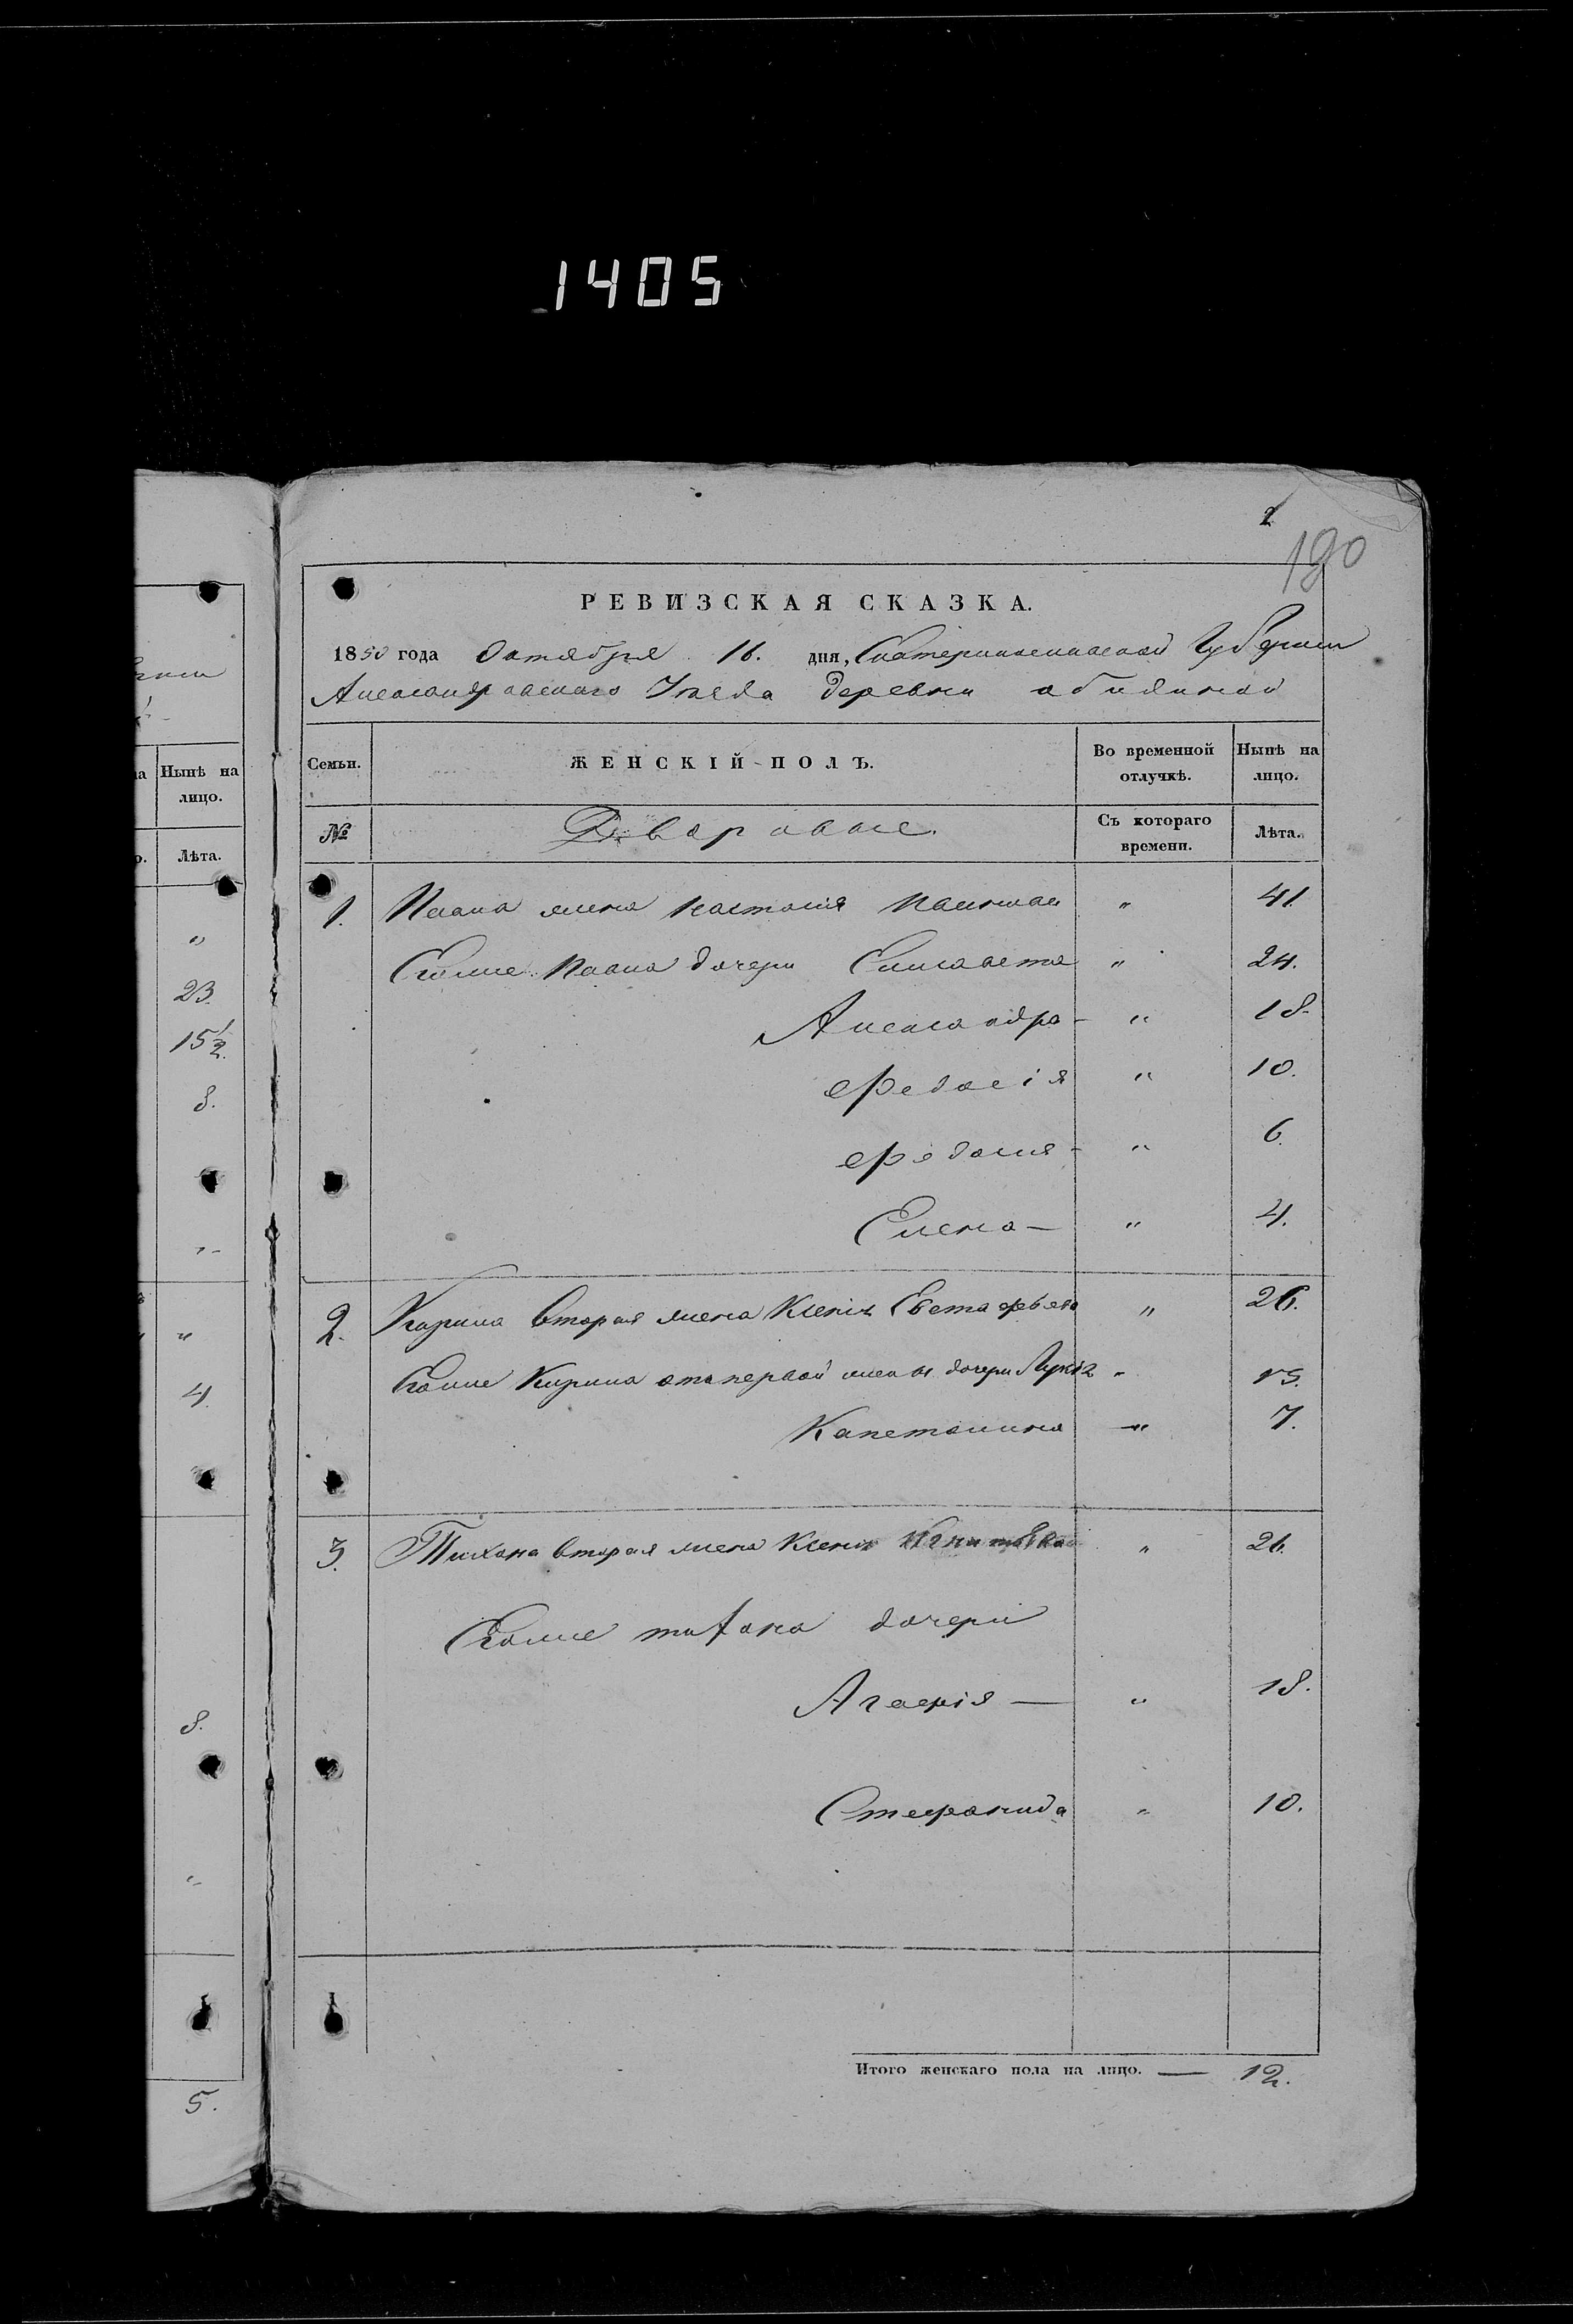 1405
2
190
РЕВИЗСКАЯ СКАЗКА.
1850 года Октября 16. дня, Екатеринославской Губернии
Александровского Уезда деревни
Семьи. ЖЕНСКІЙ ПОЛЪ. Во временной отлучкѣ. Нынѣ на лицо.
№ Дворовые. Съ котораго времени. Лѣта.
1. жена " 41.
Его же дочери Елисавета " 24.
Александра - " 18.
Федосія " 10.
Федосия - " 6.
Елена — " 4.
2. Кирила вторая жена Ксенія Евстафьева " 26.
Его же Кирила отъ первой жены дочери Лукія " 13.
Капетолина — " 7.
3. Тихона вторая жена Ксенія " 26.
Его же тихона дочери
Агафія — " 18.
Стефанида " 10.
Итого женскаго пола на лицо. — 12.
Нынѣ на
лицо.
Лѣта.
"
23.
15½.
8.
"
"
4.
8.
"
5.